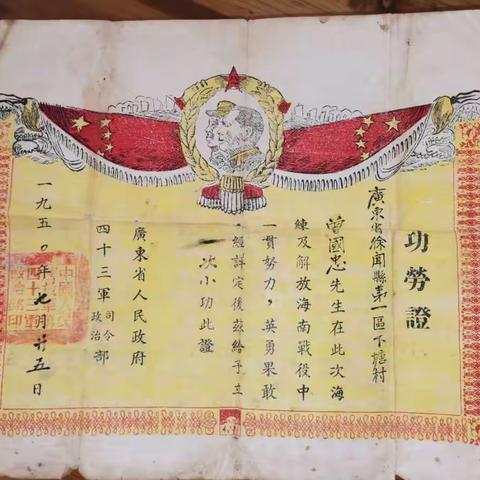 功勞證
廣東省徐聞縣第一區下塘村
曾國忠先生在此次海
練及解放海南戰役中
一貫努力，英勇果敢
，經評定後茲給予立
一次小功此證
廣東省人民政府
四十三軍司令部
政治
一九五〇年七月廿五日